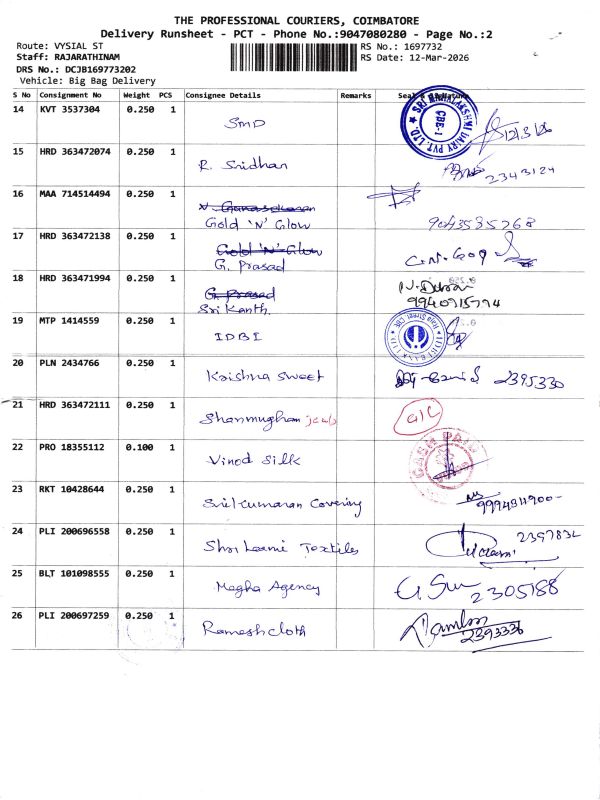 THE PROFESSIONAL COURIERS, COIMBATORE
Delivery Runsheet - PCT - Phone No.:9047080280 - Page No.:2
Route: VYSIAL ST
RS No.: 1697732
Staff: RAJARATHINAM
RS Date: 12-Mar-2026
DRS No.: DCJB169773202
Vehicle: Big Bag Delivery
S No Consignment No Weight PCS Consignee Details Remarks Seal & Signature
14 KVT 3537304 0.250 1 SMD
SRI MAHALAKSHMI DAIRY PVT. LTD. CBE-1
12/3/26
15 HRD 363472074 0.250 1 R. Sridhar
2343124
16 MAA 714514494 0.250 1
Gold 'N' Glow
9043535768
17 HRD 363472138 0.250 1 Gold 'N' Glow
G. Prasad
18 HRD 363471994 0.250 1 G. Prasad
Sri Kanth
19 MTP 1414559 0.250 1 IDBI
20 PLN 2434766 0.250 1 Krishna Sweet
2395330
21 HRD 363472111 0.250 1 Shanmugham
22 PRO 18355112 0.100 1 Vinod Silk
CASH PAID
23 RKT 10428644 0.250 1 Sri Kumaran Covering
24 PLI 200696558 0.250 1 Shri Laxmi Textiles
25 BLT 101098555 0.250 1 Megha Agency
2305188
26 PLI 200697259 0.250 1 Ramesh cloth
2393336